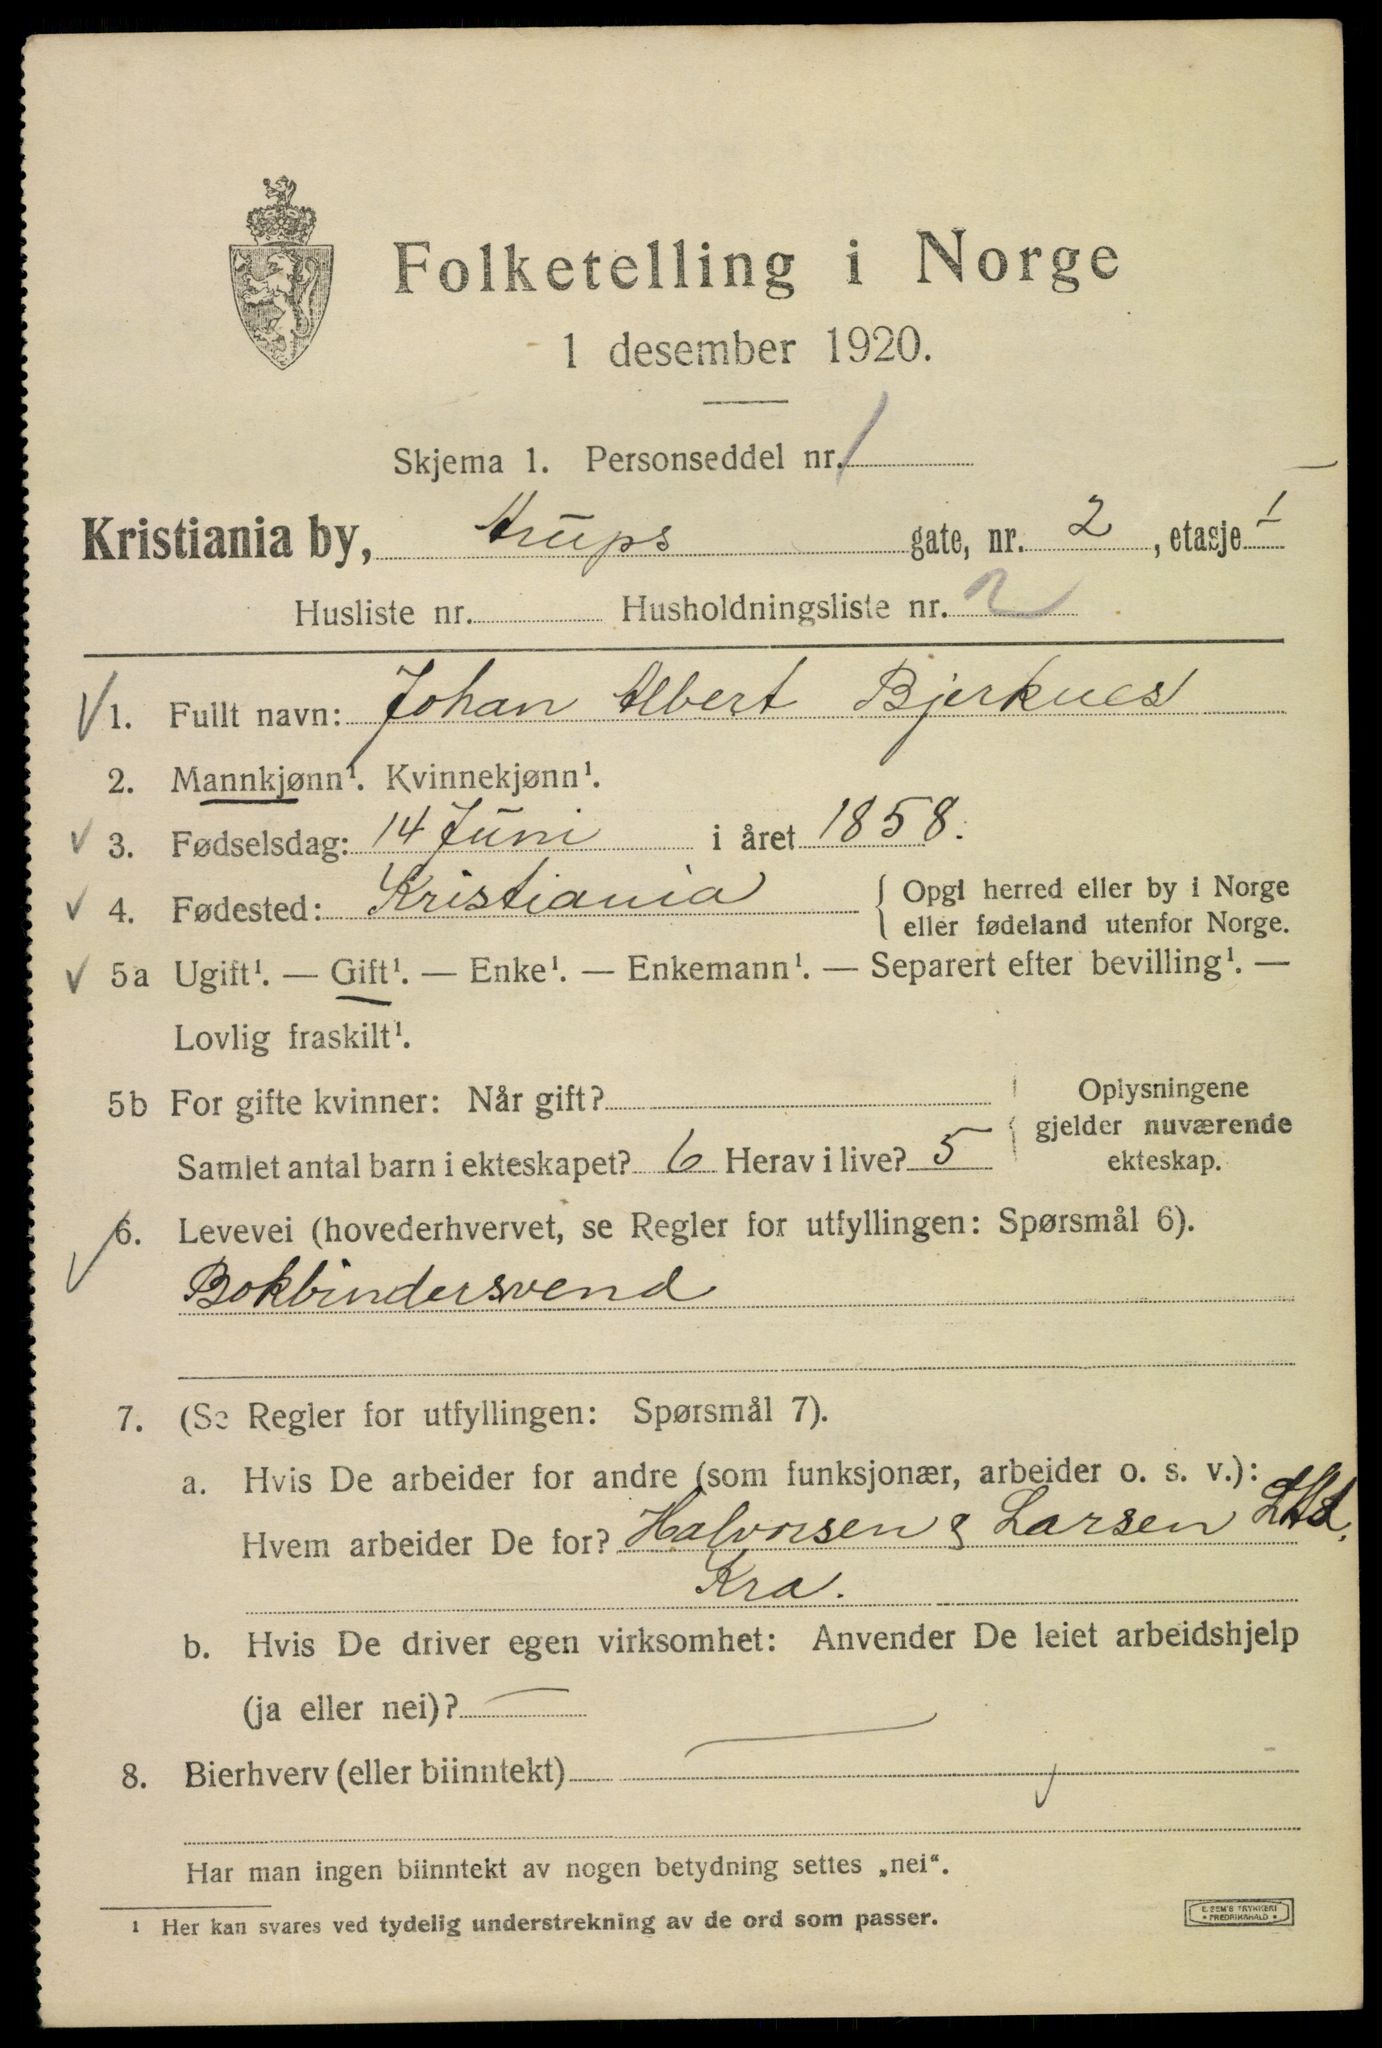 Folketelling i Norge
1 desember 1920.
Skjema 1. Personseddel nr. 1
Kristiania by, Strups gate, nr. 2, etasje 1
Husliste nr. Husholdningsliste nr. 2
1. Fullt navn: Johan Albert Bjerknes
2. Mannkjønn¹. Kvinnekjønn¹.
3. Fødselsdag: 14 Juni i året 1858.
4. Fødested: Kristiania { Opgi herred eller by i Norge
eller fødeland utenfor Norge.
5a Ugift¹. — Gift¹. — Enke¹. — Enkemann¹. — Separert efter bevilling¹. —
Lovlig fraskilt¹.
5b For gifte kvinner: Når gift?
Samlet antal barn i ekteskapet? 6 Herav i live? 5
Oplysningene
gjelder nuværende
ekteskap.
6. Levevei (hovederhvervet, se Regler for utfyllingen: Spørsmål 6).
Bokbindersvend
7. (Se Regler for utfyllingen: Spørsmål 7).
a. Hvis De arbeider for andre (som funksjonær, arbeider o. s. v.):
Hvem arbeider De for? Halvorsen & Larsen Ltd.
Kra.
b. Hvis De driver egen virksomhet: Anvender De leiet arbeidshjelp
(ja eller nei)? —
8. Bierhverv (eller biinntekt) —
Har man ingen biinntekt av nogen betydning settes „nei“.
¹ Her kan svares ved tydelig understrekning av de ord som passer.
E. SEM'S TRYKKERI
• FREDRIKSHALD •